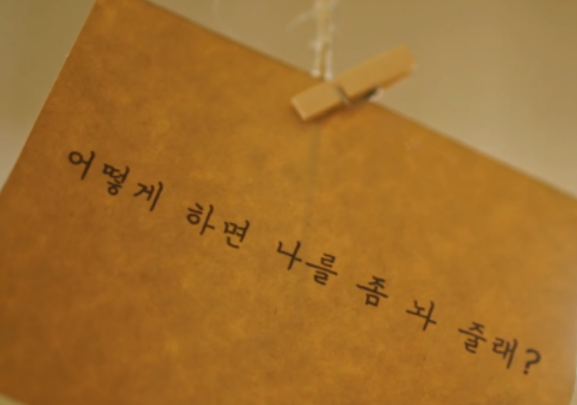 어떻게 하면 나를 좀 놔 줄래?